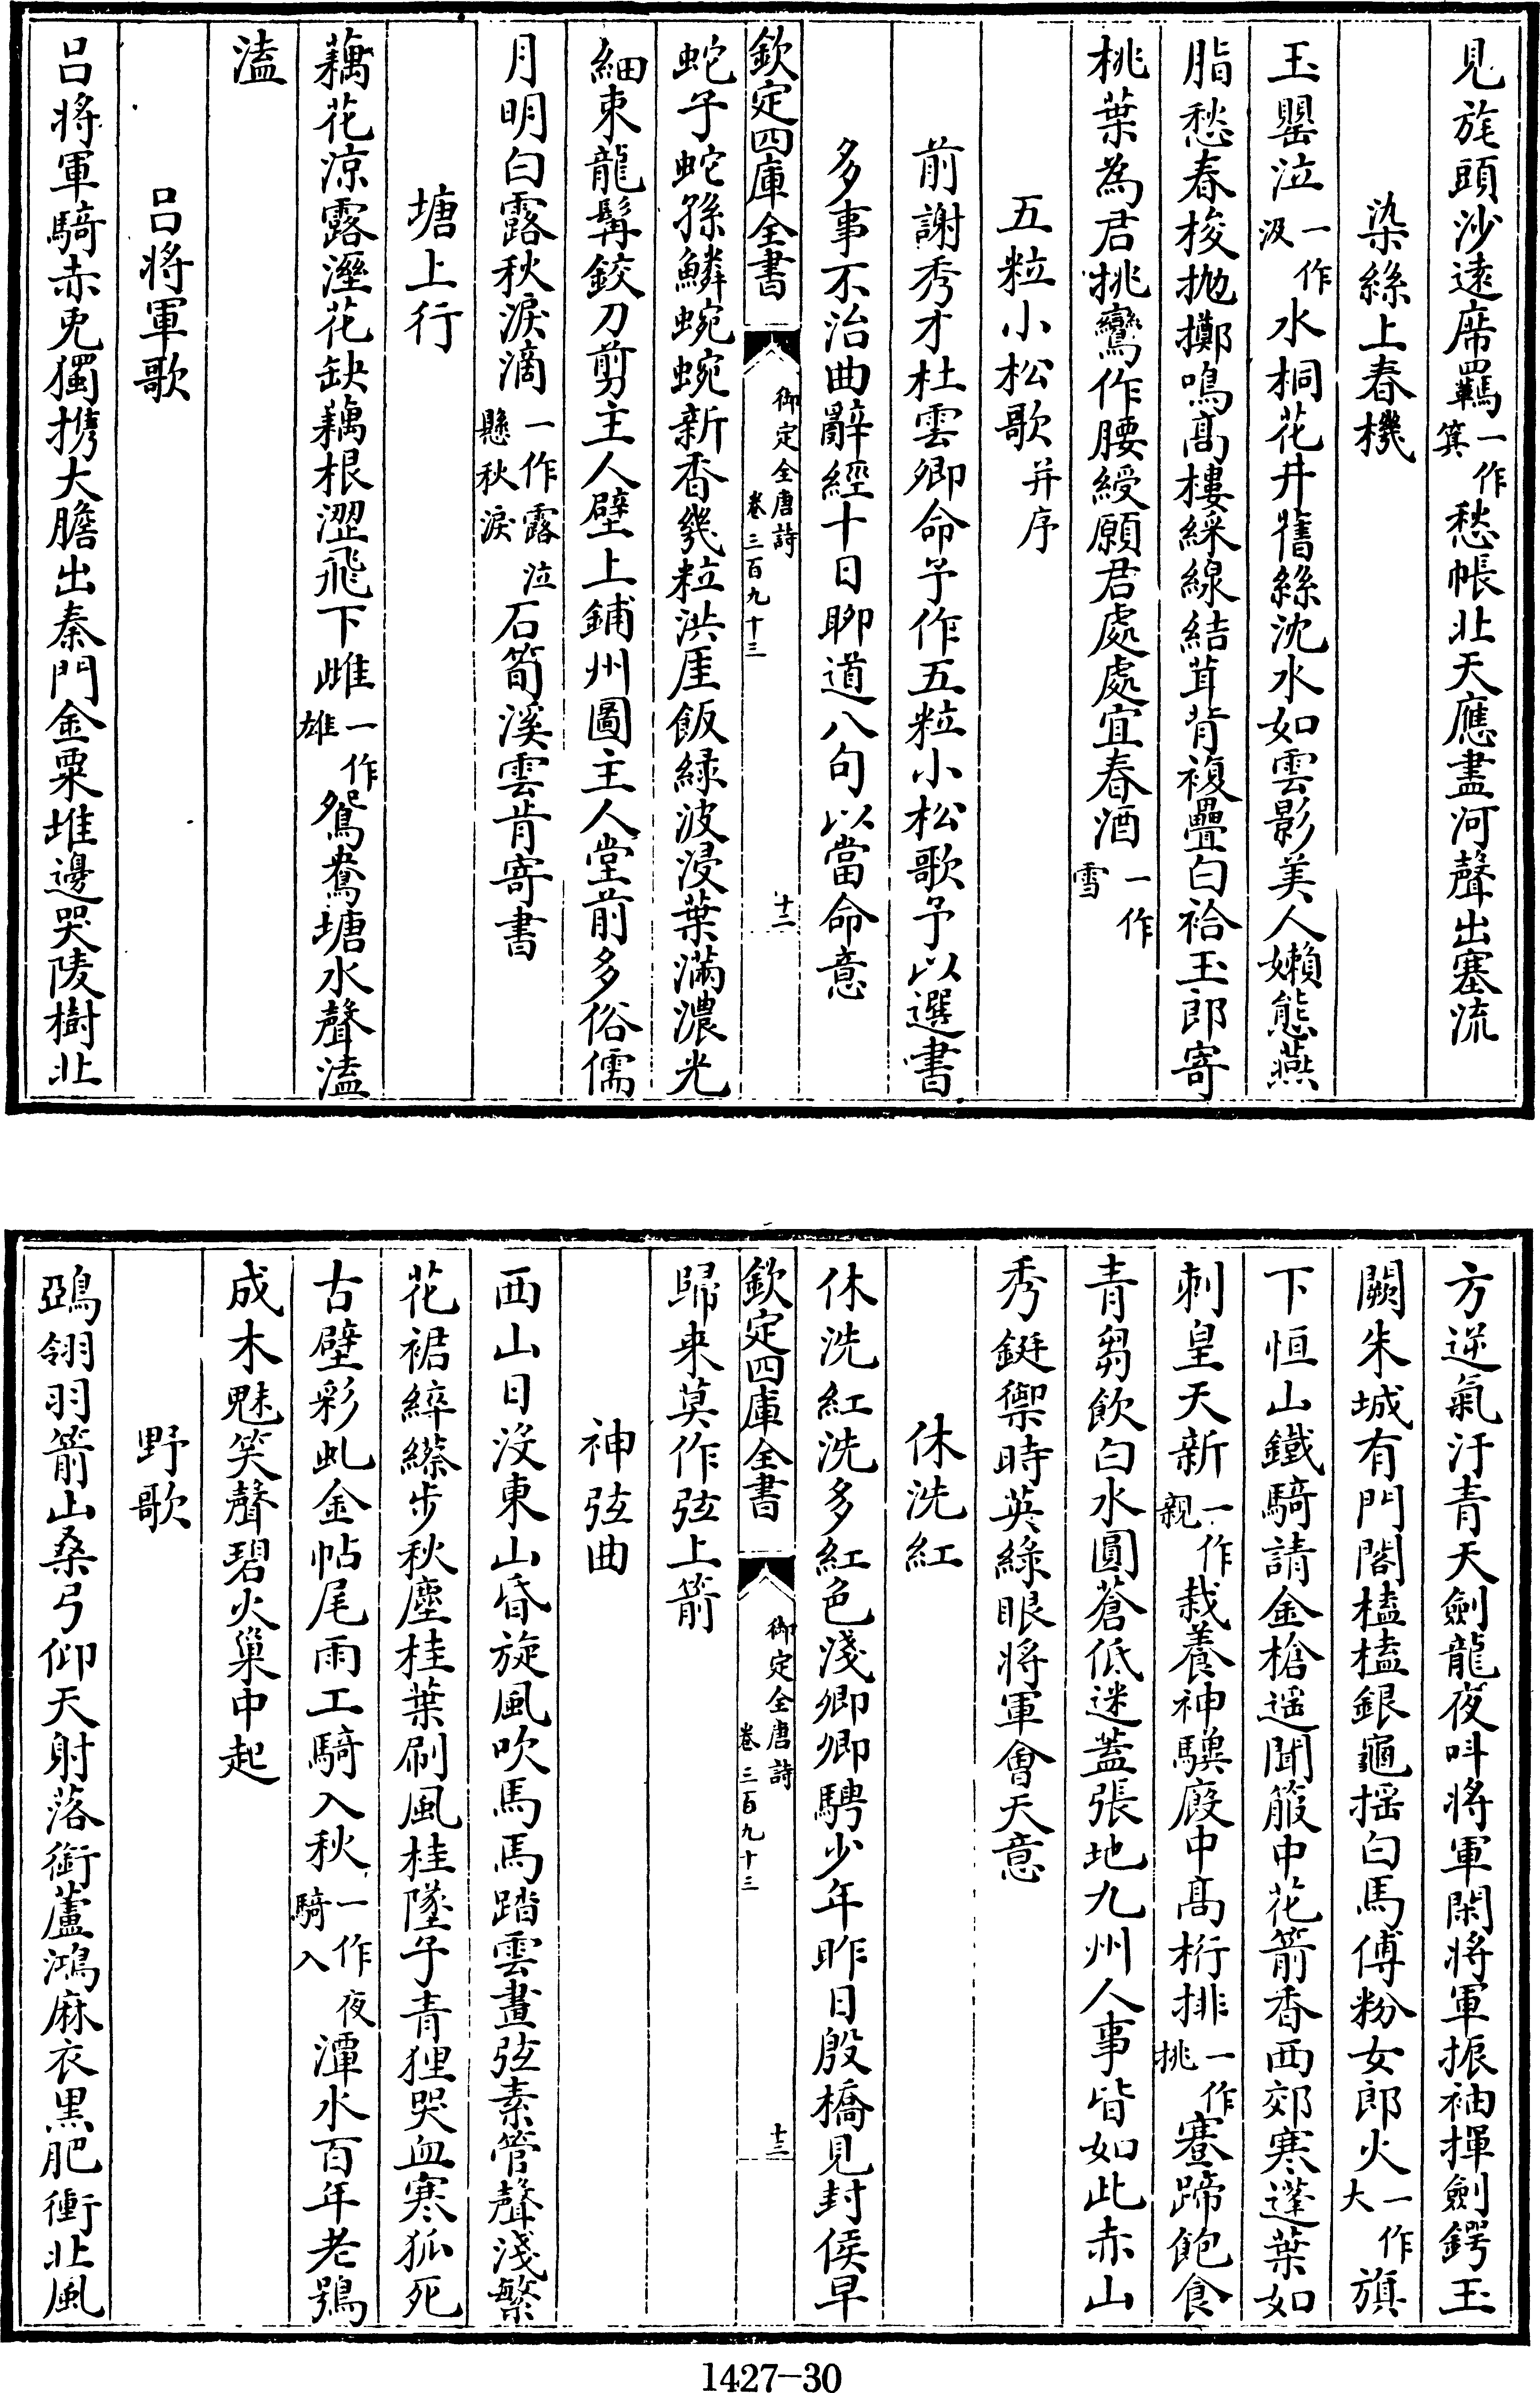 見旄頭沙遠席羈一作箕愁帳北天應盡河聲出塞流
染絲上春機
玉罌泣一作汲水桐花井舊絲沈水如雲影美人嬾態燕
脂愁春梭抛擲鳴髙樓綵線結茸背複疊白袷玉郎寄
桃葉為君挑鸞作腰綬願君處處宜春酒一作雪
五粒小松歌并序
前謝秀才杜雲卿命予作五粒小松歌予以選書
多事不治曲辭經十日聊道八句以當命意
欽定四庫全書 御定全唐詩卷三百九十三 十二
蛇子蛇孫鱗蜿蜿新香幾粒洪厓飯緑波浸葉滿濃光
細束龍髯鉸刀剪主人壁上鋪州圖主人堂前多俗儒
月明白露秋淚滴一作露泣懸秋淚石筍溪雲肯寄書
塘上行
藕花凉露溼花缺藕根澀飛下雌一作雄鴛鴦塘水聲溘
溘
吕將軍歌
吕將軍騎赤兎獨携大膽出秦門金粟堆邊哭陵樹北
方逆氣汙青天劍龍夜叫將軍閑將軍振袖揮劍鍔玉
闕朱城有門閣榼榼銀龜揺白馬傅粉女郎火一作大旗
下恒山鐵騎請金槍遥聞箙中花箭香西郊寒蓬葉如
刺皇天新一作親栽養神驥廐中髙桁排一作挑蹇蹄飽食
青芻飲白水圓蒼低迷蓋張地九州人事皆如此赤山
秀鋋禦時英綠眼將軍會天意
休洗紅
休洗紅洗多紅色淺卿卿騁少年昨日殷橋見封侯早
欽定四庫全書 御定全唐詩卷三百九十三 十三
歸來莫作弦上箭
神弦曲
西山日没東山昏旋風吹馬馬踏雲畫弦素管聲淺繁
花裙綷縩步秋塵桂葉刷風桂墜子青狸哭血寒狐死
古壁彩虬金帖尾雨工騎入秋一作夜騎入潭水百年老鴞
成木魅笑聲碧火巢中起
野歌
鵶翎羽箭山桑弓仰天射落銜蘆鴻麻衣黒肥衝北風
1427-30